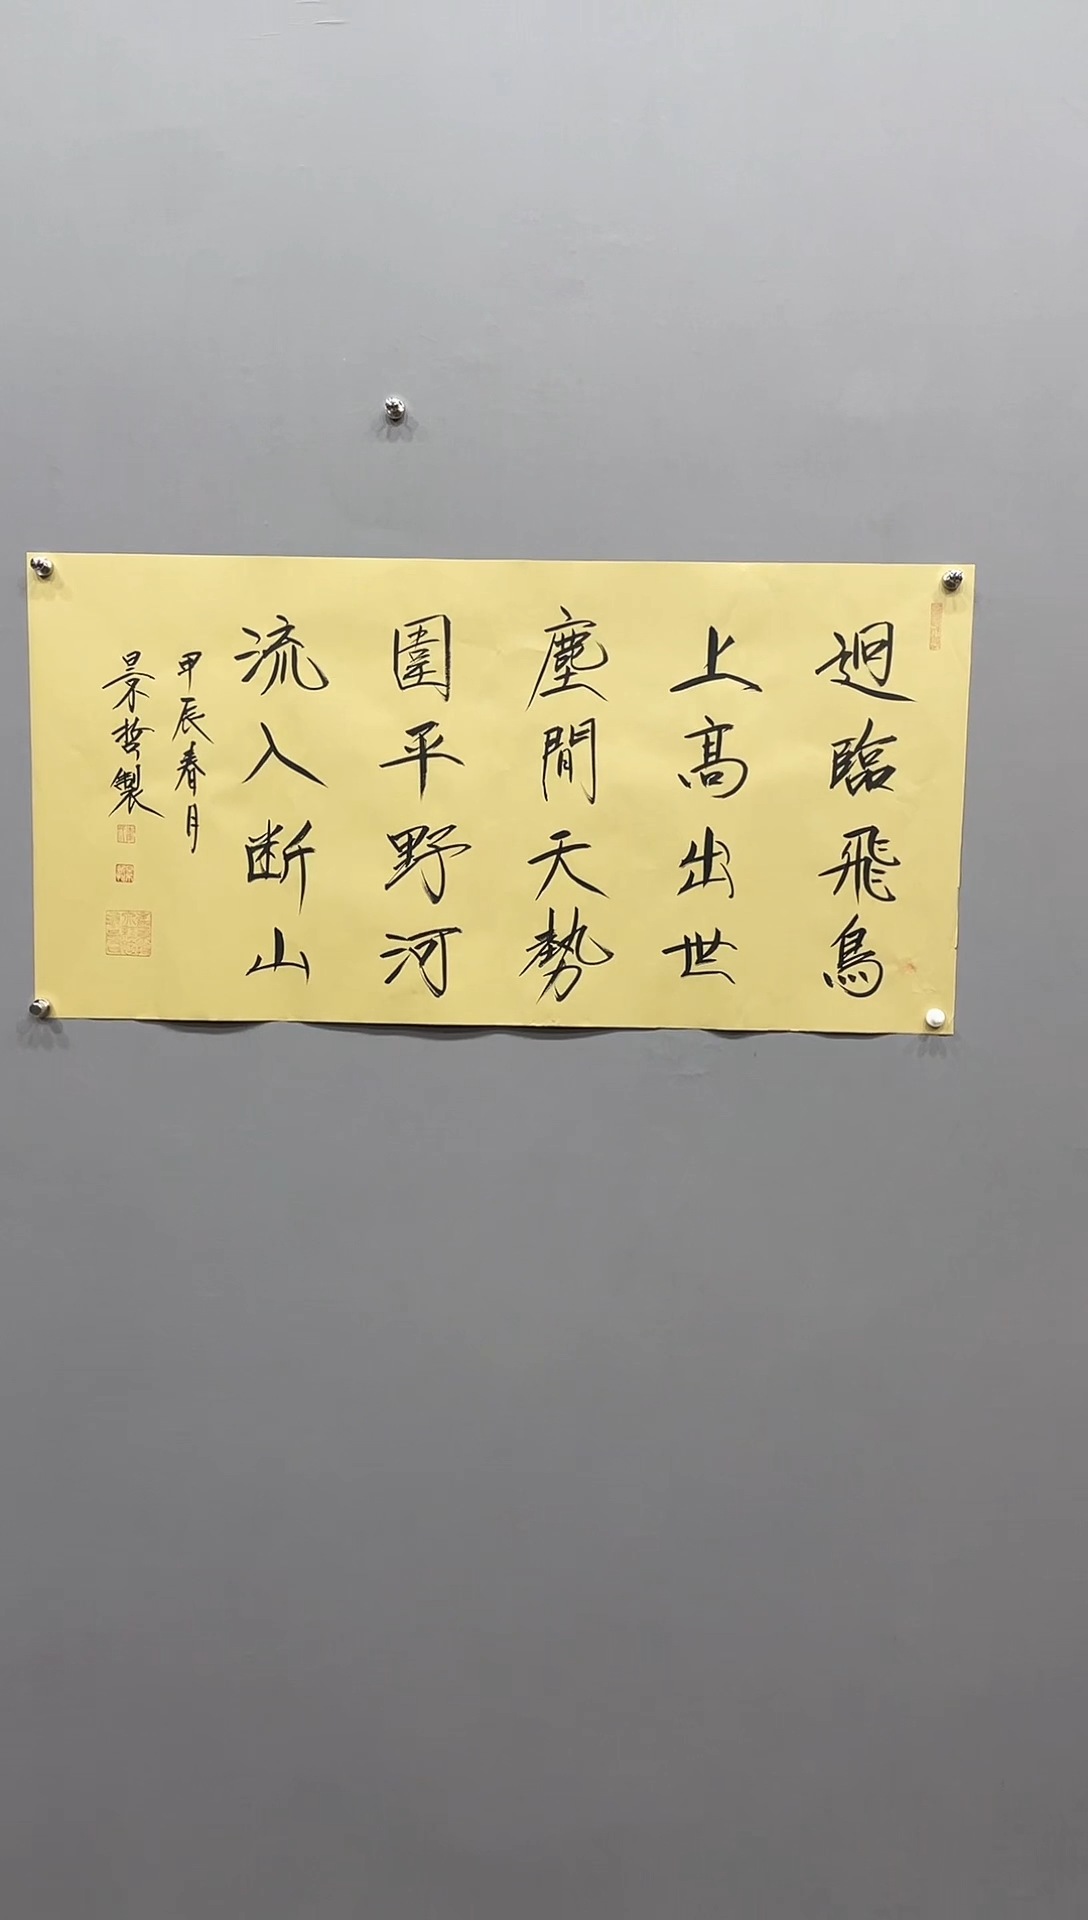 迥臨飛鳥
上高出世
塵間天勢
圍平野河
流入断山
甲辰春月
景哲製